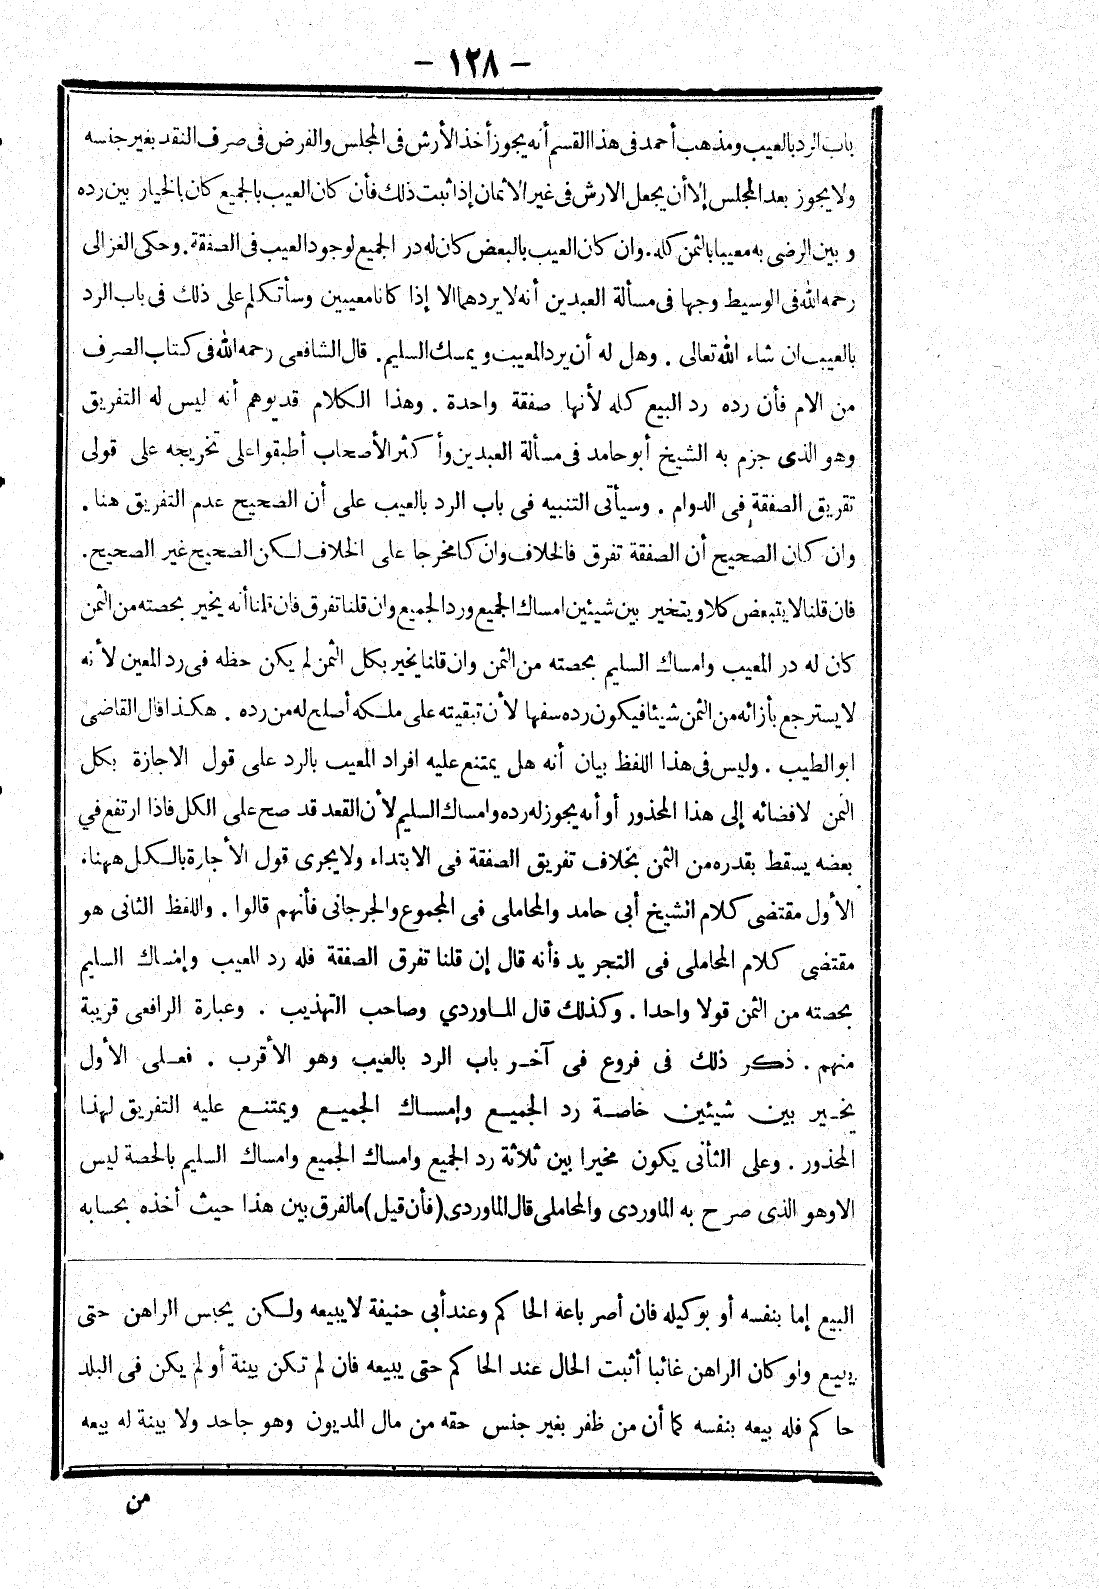 — ١٢٨ —
باب الرد بالعيب ومذهب أحمد فى هذا القسم أنه يجوز أخذ الأرش فى المجلس والفرض فى صرف النقد بغير جنسه
ولا يجوز بعد المجلس إلا أن يجعل الارش فى غير الاثمان إذا ثبت ذلك فأن كان العيب بالجميع كان بالخيار بين رده
و بين الرضى به معيبا بالثمن كله. وان كان العيب بالبعض كان له در الجميع لوجود العيب فى الصفقة. وحكى الغزالى
رحمه الله فى الوسيط وجها فى مسألة العبدين أنه لا يردهما الا إذا كانا معيبين وسأتكلم على ذلك فى باب الرد
بالعيب ان شاء الله تعالى . وهل له أن يرد المعيب و يمسك السليم. قال الشافعى رحمه الله فى كتاب الصرف
من الام فأن رده رد البيع كله لأنها صفقة واحدة . وهذا الكلام قد يوهم أنه ليس له التفريق
وهو الذى جزم به الشيخ أبو حامد فى مسألة العبدين وأكثر الأصحاب أطبقوا على تخريجه على قولى
تقريق الصفقة فى الدوام . وسيأتى التنبيه فى باب الرد بالعيب على أن الصحيح عدم التفريق هنا .
وان كان الصحيح أن الصفقة تفرق فالخلاف وان كا مخرجا على الخلاف لكن الصحيح غير الصحيح.
فان قلنا لا يتبعض كلا ويتخير بين شيئين امساك الجميع ورد الجميع وان قلنا تفرق فان قلنا أنه يخير بحصته من الثمن
كان له در المعيب وامساك السليم بحصته من الثمن وان قلنا يخير بكل الثمن لم يكن حظه فى رد المعين لأنه
لا يسترجع بأزائه من الثمن شيئا فيكون رده سفها لأن تبقيته على ملكه أصلح له من رده . هكذا قال القاضى
ابو الطيب . وليس فى هذا اللفظ بيان أنه هل يمتنع عليه افراد المعيب بالرد على قول الاجازة بكل
الثمن لافضائه إلى هذا المحذور أو أنه يجوز له رده وامساك السليم لأن القعد قد صح على الكل فاذا ارتفع في
بعضه يسقط بقدره من الثمن بخلاف تفريق الصفقة فى الابتداء ولا يجرى قول الأجارة بالكل ههنا،
الأول مقتضى كلام الشيخ أبى حامد والمحاملى فى المجموع والجرجانى فأنهم قالوا . واللفظ الثانى هو
مقتضى كلام المحاملى فى التجريد فأنه قال إن قلنا تفرق الصفقة فله رد المعيب وإمساك السليم
بحصته من الثمن قولا واحدا . وكذلك قال الماوردي وصاحب التهذيب . وعبارة الرافعى قريبة
منهم . ذكر ذلك فى فروع فى آخر باب الرد بالعيب وهو الأقرب . فعلى الأول
يخير بين شيئين خاصة رد الجميع وإمساك الجميع ويمتنع عليه التفريق لهذا
المحذور . وعلى الثأنى يكون مخيرا بين ثلاثة رد الجميع وامساك الجميع وامساك السليم بالحصة ليس
الا وهو الذى صرح به الماوردى والمحاملى قال الماوردى (فأن قيل) مالفرق بين هذا حيث أخذه بحسابه
البيع إما بنفسه أو بوكيله فان أصر باعه الحاكم وعند أبى حنيفة لا يبيعه ولكن يحبس الراهن حتى
يبيع ولو كان الراهن غائبا أثبت الحال عند الحاكم حتى يبيعه فان لم تكن بينة أو لم يكن فى البلد
حاكم فله بيعه بنفسه كما أن من ظفر بغير جنس حقه من مال المديون وهو جاحد ولا بينة له بيعه
من